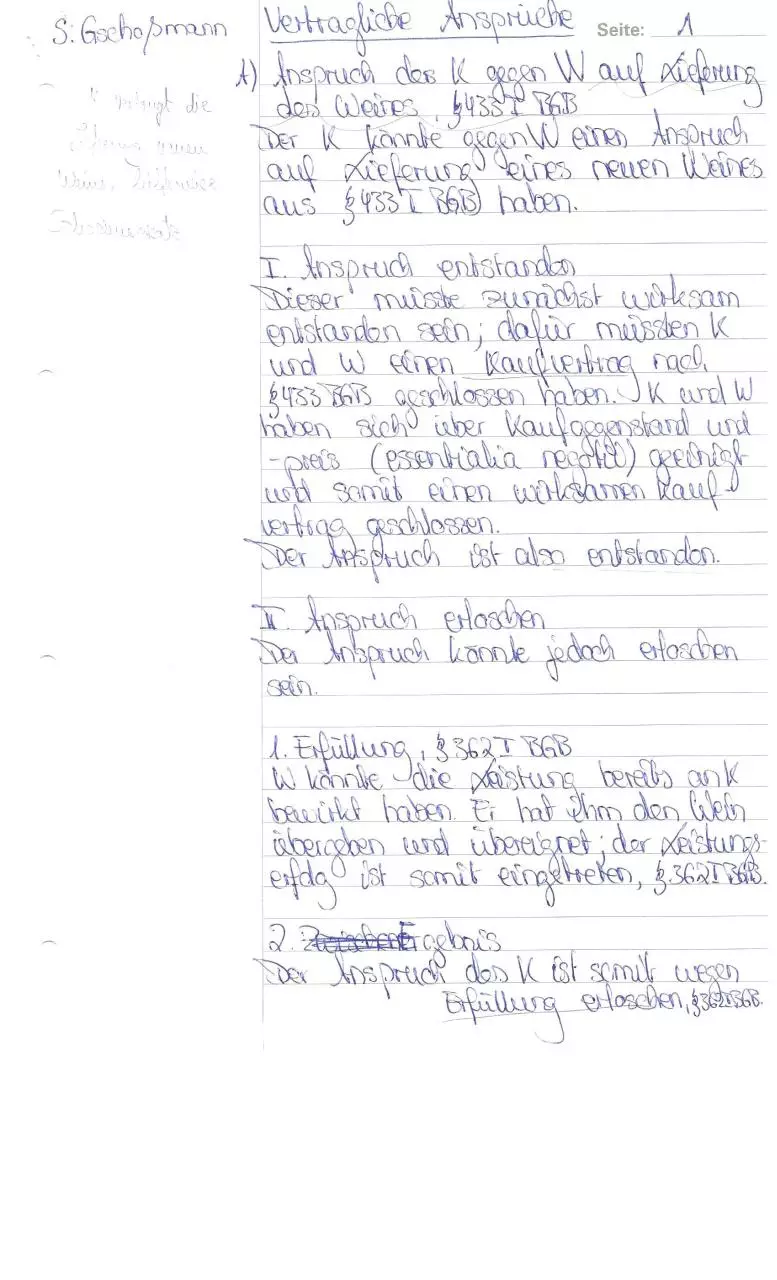 S. Gschoßmann
Vertragliche Ansprüche
Seite: 1
A) Anspruch des K gegen W auf Lieferung
des Weines, §433 I BGB
Der K könnte gegen W einen Anspruch
auf Lieferung eines neuen Weines
aus §433 I BGB haben.
I. Anspruch entstanden
Dieser müsste zunächst wirksam
entstanden sein; dafür müssten K
und W einen Kaufvertrag nach
§433 BGB geschlossen haben. K und W
haben sich über Kaufgegenstand und
-preis (essentialia negotii) geeinigt
und somit einen wirksamen Kauf-
vertrag geschlossen.
Der Anspruch ist also entstanden.
II. Anspruch erloschen
Der Anspruch könnte jedoch erloschen
sein.
1. Erfüllung, §362 I BGB
W könnte die Leistung bereits an K
bewirkt haben. Er hat ihm den Wein
übergeben und übereignet; der Leistungs-
erfolg ist somit eingetreten, §362 I BGB.
2. Ergebnis
Der Anspruch des K ist somit wegen
Erfüllung erloschen, §362 I BGB.
verlangt die